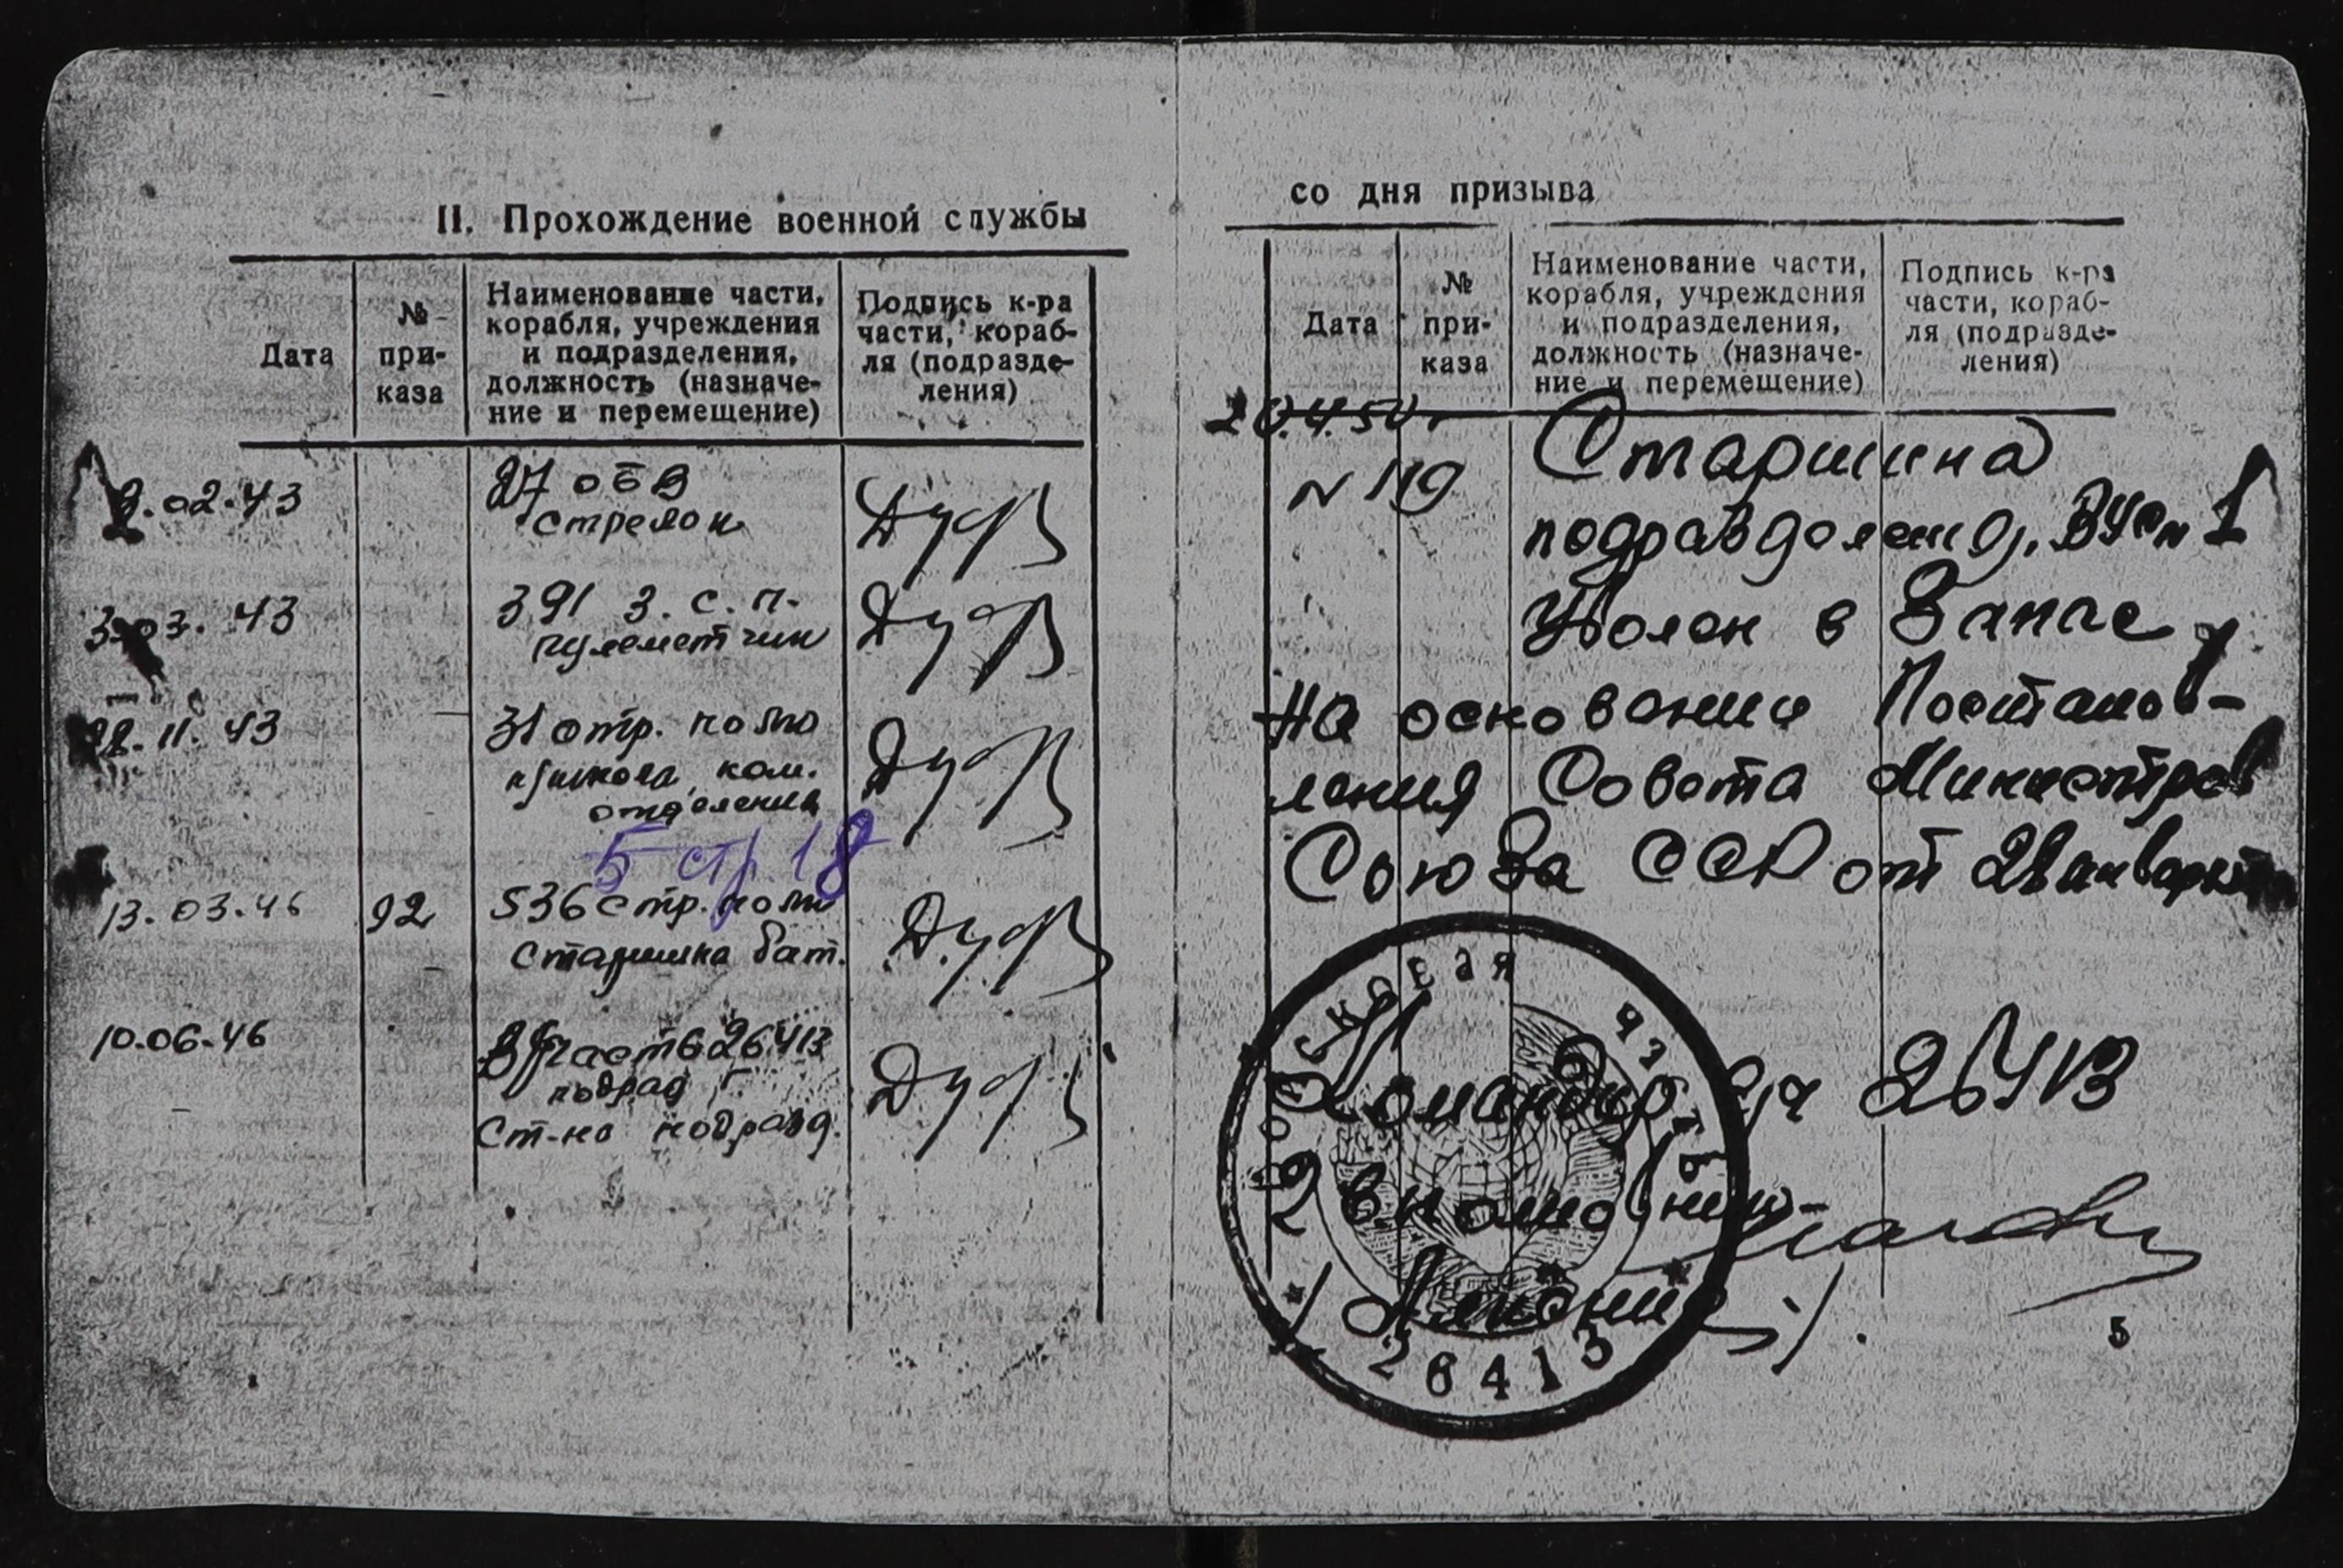 II. Прохождение военной службы
Дата
№
при-
каза
Наименование части,
корабля, учреждения
и подразделения,
должность (назначе-
ние и перемещение)
Подпись к-ра
части, кораб-
ля (подразде-
ления)
2.02.43
27 обв
стрелок
3.03.43
391 з.с.п.
пулеметчик
28.11.43
31 отр. полк
ком.
отделения
5 стр 18
13.03.46
92
536 стр. полк
старшина бат.
10.06.46
В/часть 26413
подразд
Ст-на подразд.
со дня призыва
Дата
№
при-
каза
Наименование части,
корабля, учреждения
и подразделения,
должность (назначе-
ние и перемещение)
Подпись к-ра
части, кораб-
ля (подразде-
ления)
20.4.50г
N 119
Старшина
подразделен
Уволен в Запас
На основании Постанов-
ления Совета Министров
Союза ССР от 28 января
Командир в/ч 26413
Войсковая часть
26413
5